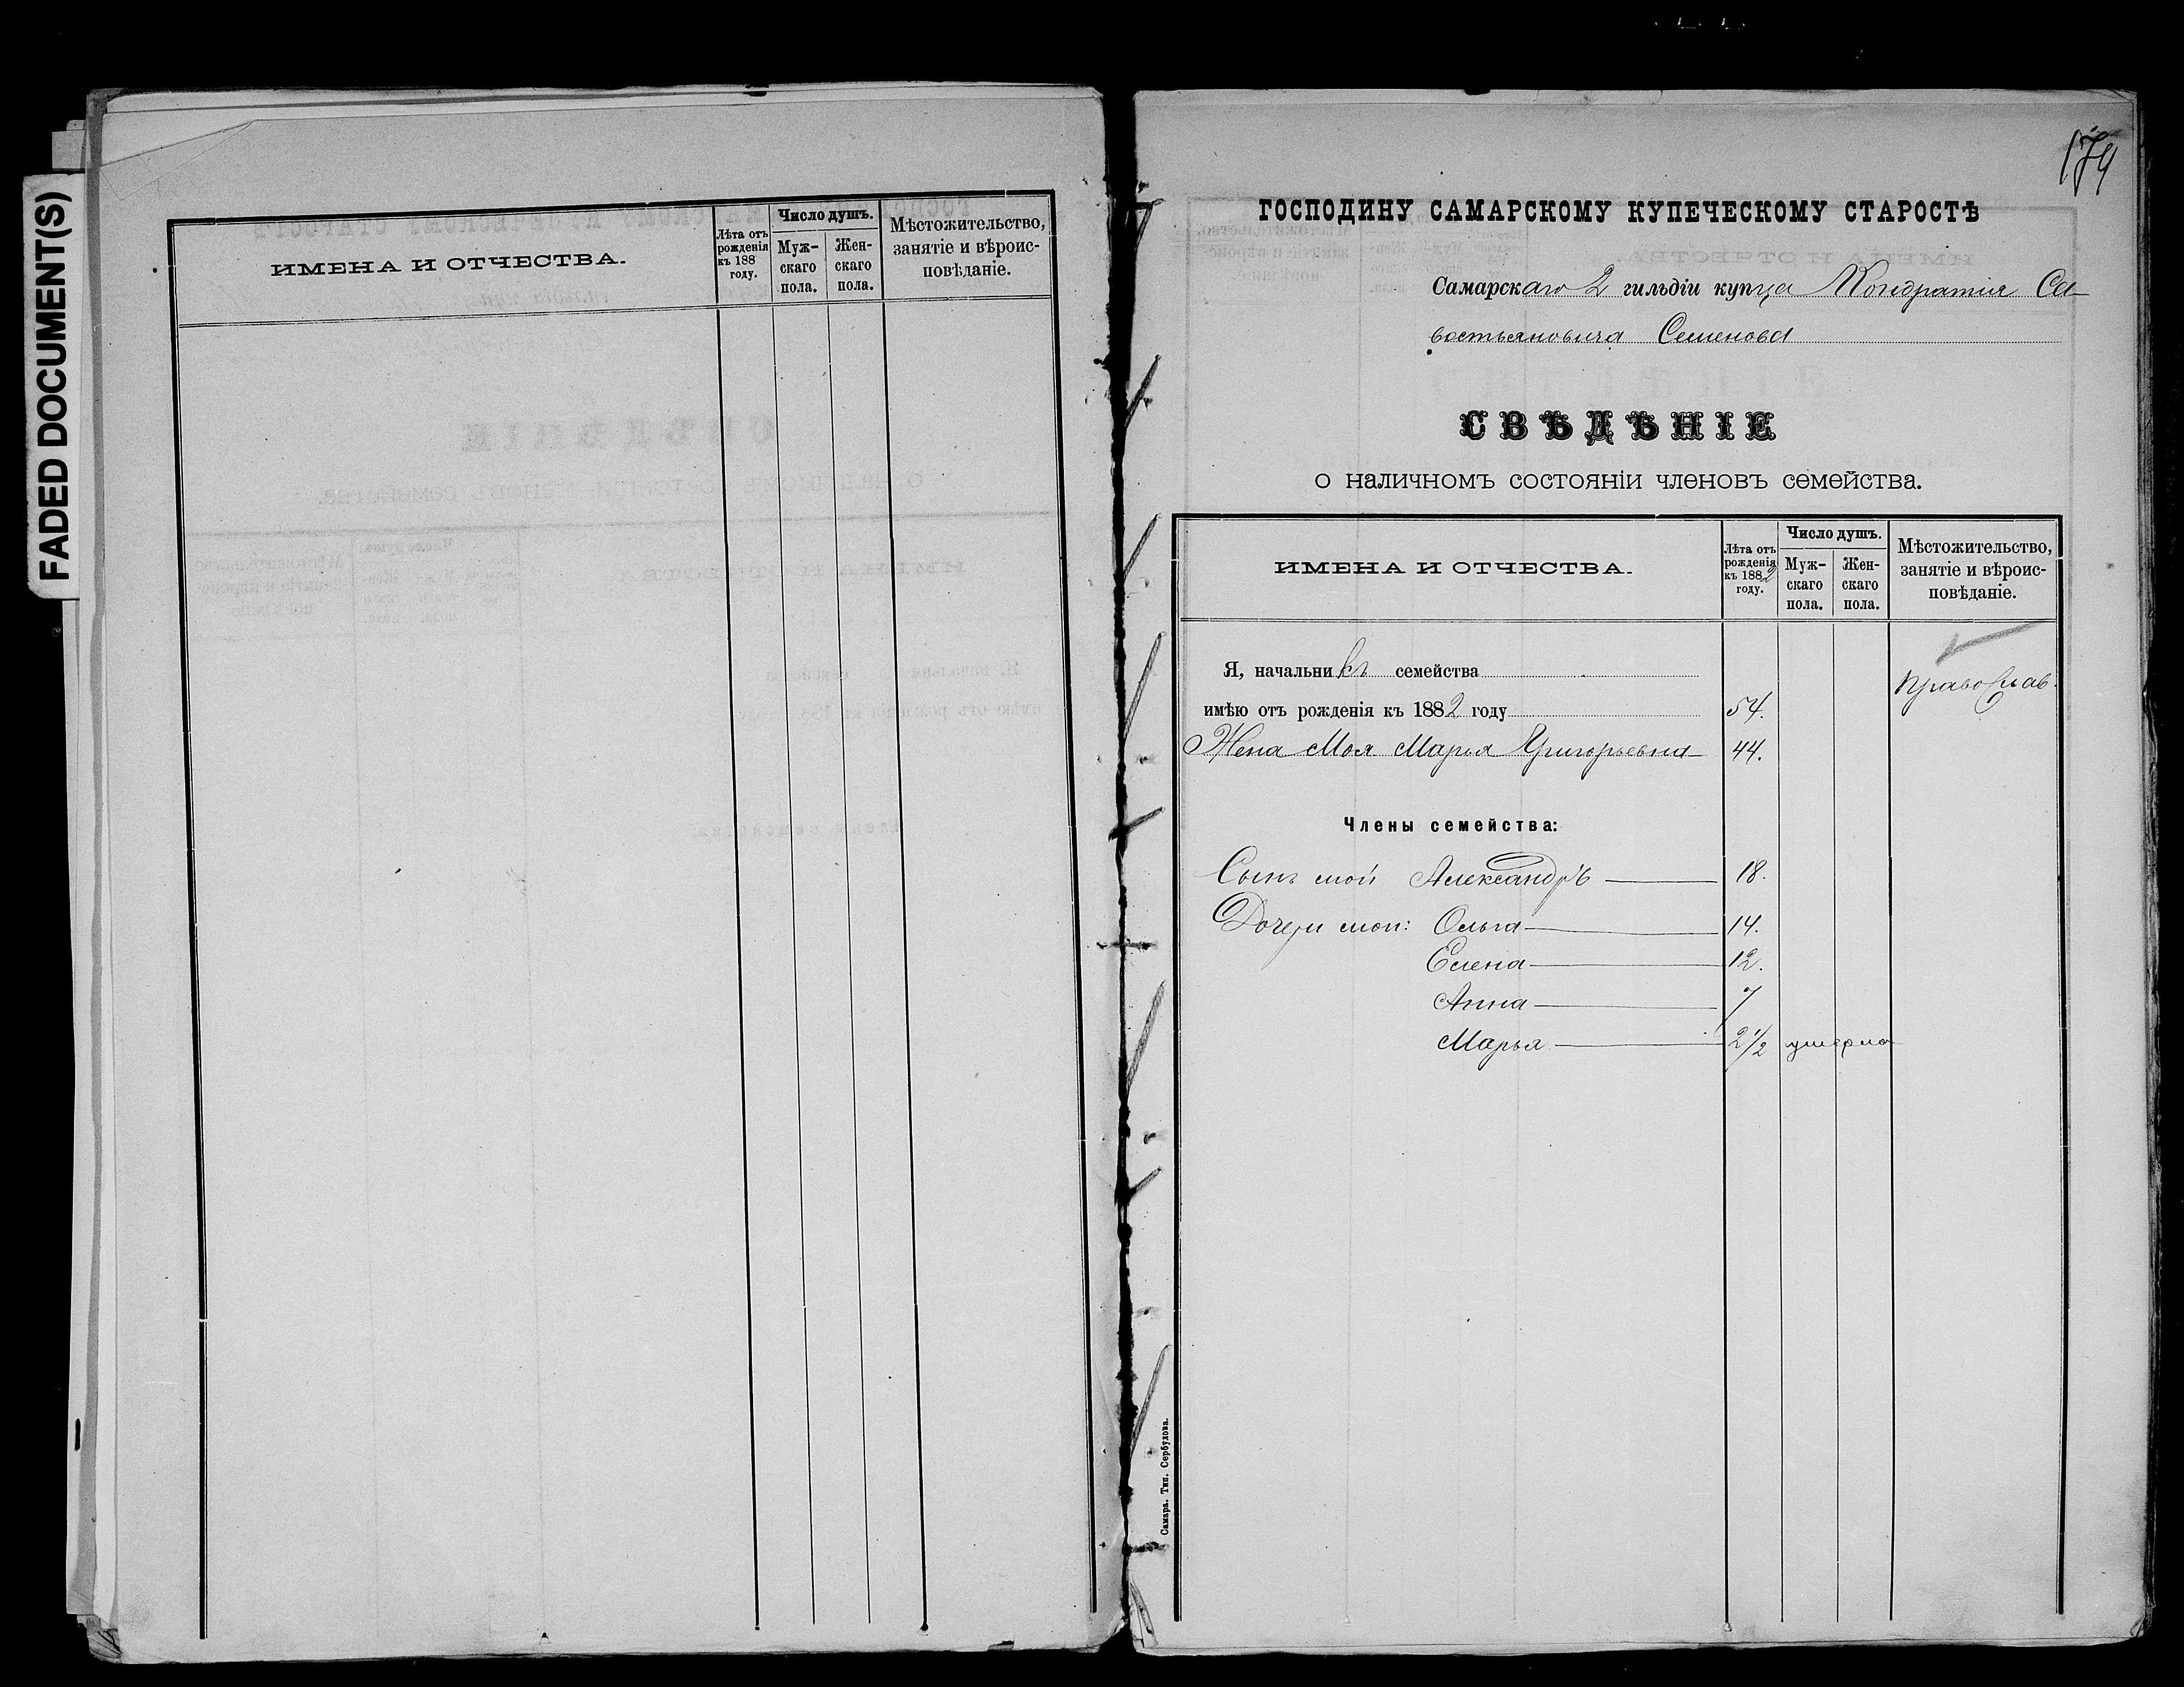 FADED DOCUMENT(S)
ИМЕНА И ОТЧЕСТВА.
Лѣта отъ
рожденія
къ 188
году.
Число душъ.
Муж-
скаго
пола.
Жен-
скаго
пола.
Мѣстожительство,
занятіе и вѣроис-
повѣданіе.
179
ГОСПОДИНУ САМАРСКОМУ КУПЕЧЕСКОМУ СТАРОСТѢ
Самарскаго 2 гильдіи купца Кондратія Са-
востьяновича Семенова
СВѢДѢНІЕ
о наличномъ состояніи членовъ семейства.
ИМЕНА И ОТЧЕСТВА.
Лѣта отъ
рожденія
къ 1882
году.
Число душъ.
Муж-
скаго
пола.
Жен-
скаго
пола.
Мѣстожительство,
занятіе и вѣроис-
повѣданіе.
Я, начальникъ семейства
Православ.
имѣю отъ рожденія къ 1882 году 54.
Жена моя Марья Григорьевна 44.
Члены семейства:
Сынъ мой Александръ 18.
Дочери мои: Ольга 14.
Елена 12.
Анна 7
Марья 2½ умерла
Самара. Тип. Сербулова.